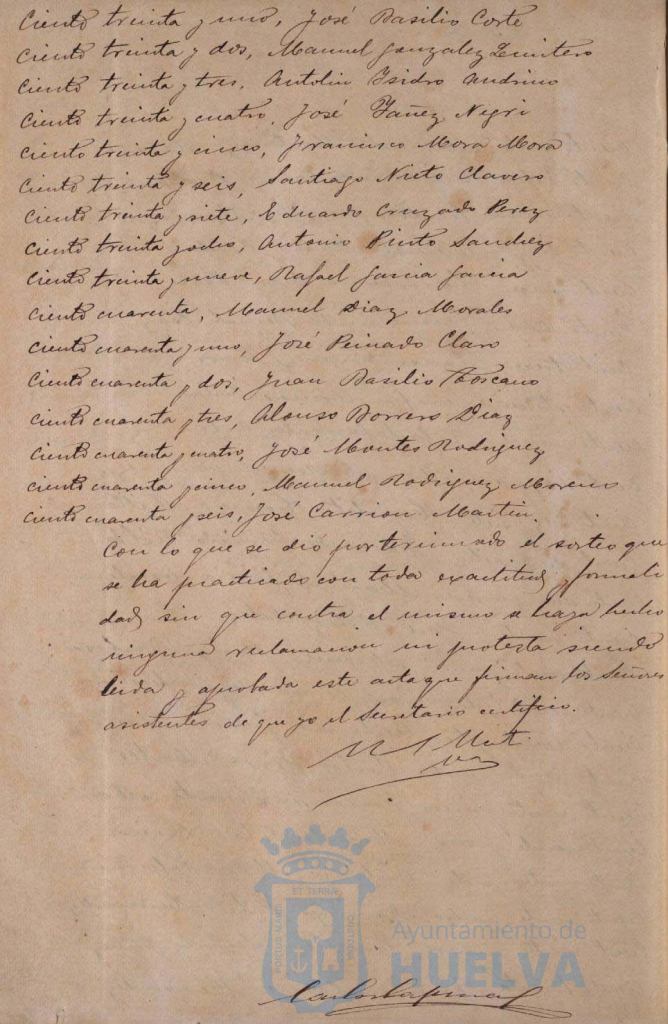 Ciento treinta y uno, José Basilio Corte
Ciento treinta y dos, Manuel Gonzalez Quintero
Ciento treinta y tres, Antolin Isidro Andrino
Ciento treinta y cuatro, José Yañez Negri
Ciento treinta y cinco, Francisco Mora Mora
Ciento treinta y seis, Santiago Nieto Clavero
Ciento treinta y siete, Eduardo Cruzado Perez
Ciento treinta y ocho, Antonio Pinto Sanchez
Ciento treinta y nueve, Rafael Garcia Garcia
Ciento cuarenta, Manuel Diaz Morales
Ciento cuarenta y uno, José Peinado Claro
Ciento cuarenta y dos, Juan Basilio Toscano
Ciento cuarenta y tres, Alonso Borrero Diaz
Ciento cuarenta y cuatro, José Montes Rodriguez
Ciento cuarenta y cinco, Manuel Rodriguez Moreno
Ciento cuarenta y seis, José Carrion Martin.
Con lo que se dió por terminado el sorteo que
se ha practicado con toda exactitud y formali
dad sin que contra el mismo se haya hecho
ninguna reclamacion ni protesta siendo
leida y aprobada este acta que firman los Señores
asistentes de que yo el Secretario certifico.
ET TERRÆ
PORTUS MARIS
CUSTODIA
Ayuntamiento de
HUELVA